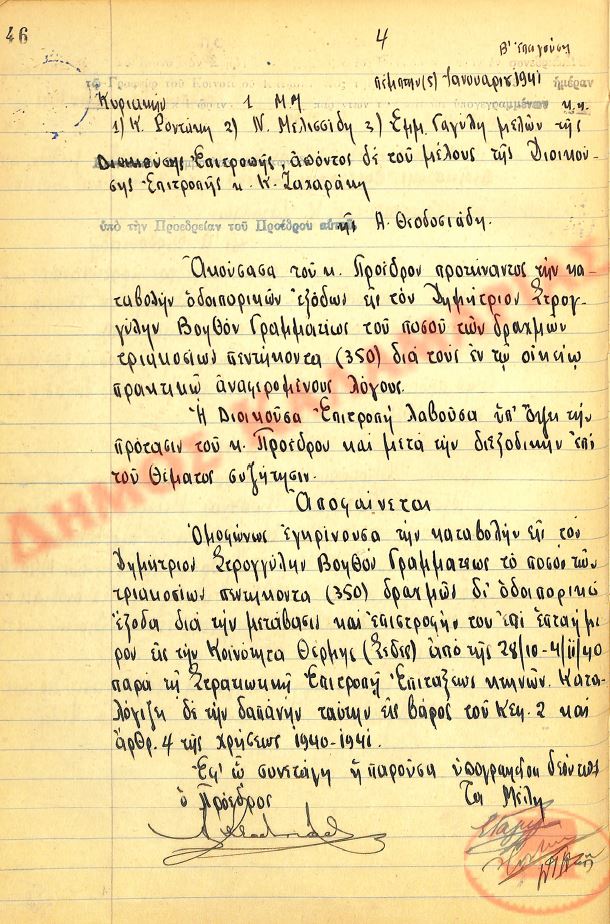 46
4
Β' Επαγούση
Πέμπτην (5) Ιανουαρίου 1941 ἡμέραν
τῷ Γραφείῳ τοῦ Κοινοτικοῦ
Κυριακήν 1 Μ.Μ ὑπογεγραμμένων κ.κ.
1) Κ. Ροντάκη 2) Ν. Μελισσίδη 3) Εμμ. Γαγύλη μελῶν τῆς
Διοικούσης Επιτροπῆς, ἀπόντος δέ τοῦ μέλους τῆς Διοικού-
σης Επιτροπῆς κ. Κ. Ζαχαράκη
ὑπὸ τὴν Προεδρείαν τοῦ Προέδρου αὐτῆς Α. Θεοδοσιάδη.
Ακούσασα τοῦ κ. Προέδρου προτείναντος τήν κα-
ταβολήν ὁδοιπορικῶν ἐξόδων εἰς τόν Δημήτριον Στρογ-
γύλην Βοηθόν Γραμματέως τοῦ ποσοῦ τῶν δραχμῶν
τριακοσίων πεντήκοντα (350) διά τους ἐν τῷ οἰκείῳ
πρακτικῷ ἀναφερομένους λόγους.
Η Διοικοῦσα Επιτροπή λαβοῦσα ὑπ' ὄψει τήν
πρότασιν τοῦ κ. Προέδρου καί μετά τήν διεξοδικήν ἐπί
τοῦ Θέματος συζήτησιν.
Αποφαίνεται
Ομοφώνως ἐγκρίνουσα τήν καταβολήν εἰς τόν
Δημήτριον Στρογγύλην Βοηθόν Γραμματέως τό ποσόν τῶν
τριακοσίων πεντήκοντα (350) δραχμῶν δι' ὁδοιπορικά
ἔξοδα διά τήν μετάβασις καί ἐπιστροφήν του ἐπί ἑπταήμε
ρον εἰς τήν Κοινότητα Θέρμης (Σέδες) ἀπό τῆς 28/10-4/11/40
παρά τῇ Στρατιωτικῇ Επιτροπῇ Επιτάξεως κτηνῶν. Κατα-
λογίζει δέ τήν δαπάνην ταύτην εἰς βάρος τοῦ Κεφ. 2 καί
ἄρθρ. 4 τῆς χρήσεως 1940-1941.
Εφ' ᾧ συνετάγη ἡ παροῦσα ὑπογραφεῖσα δεόντως
ὁ Πρόεδρος Τα Μέλη
ΔΗΜΟΣ